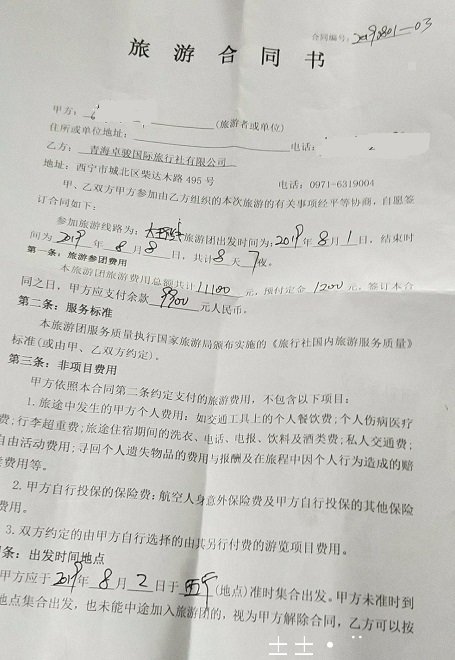 合同编号：20190801—03
旅游合同书
甲方：6　　(旅游者或单位)
住所或单位地址：　　电话：
乙方：青海卓骏国际旅行社有限公司
地址：西宁市城北区柴达木路 495 号　　电话：0971-6319004
甲、乙双方甲方参加由乙方组织的本次旅游的有关事项经平等协商，自愿签
订合同如下：
参加旅游线路为：大　旅游团出发时间为：2019 年 8 月 1 日，结束时
间为 2019 年 8 月 8 日，共计 8 天 7 夜。
第一条：旅游参团费用
本旅游团旅游费用总额共计 11100 元，预付定金 1200 元，签订本合
同之日，甲方应支付余款 9900 元人民币。
第二条：服务标准
本旅游团服务质量执行国家旅游局颁布实施的《旅行社国内旅游服务质量》
标准(或由甲、乙双方约定)。
第三条：非项目费用
甲方依照本合同第二条约定支付的旅游费用，不包含以下项目：
1. 旅途中发生的甲方个人费用：如交通工具上的个人餐饮费；个人伤病医疗
费；行李超重费；旅途住宿期间的洗衣、电话、电报、饮料及酒类费；私人交通费；
自由活动费用；寻回个人遗失物品的费用与报酬及在旅程中因个人行为造成的赔
偿费用等。
2. 甲方自行投保的保险费；航空人身意外保险费及甲方自行投保的其他保险
费用。
3. 双方约定的由甲方自行选择的由其另行付费的游览项目费用。
条：出发时间地点
甲方应于 2019 年 8 月 2 日于 西宁 (地点)准时集合出发。甲方未准时到
地点集合出发，也未能中途加入旅游团的，视为甲方解除合同，乙方可以按